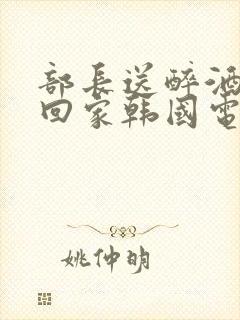 部长送醉酒
回家韩國電
姚仲明